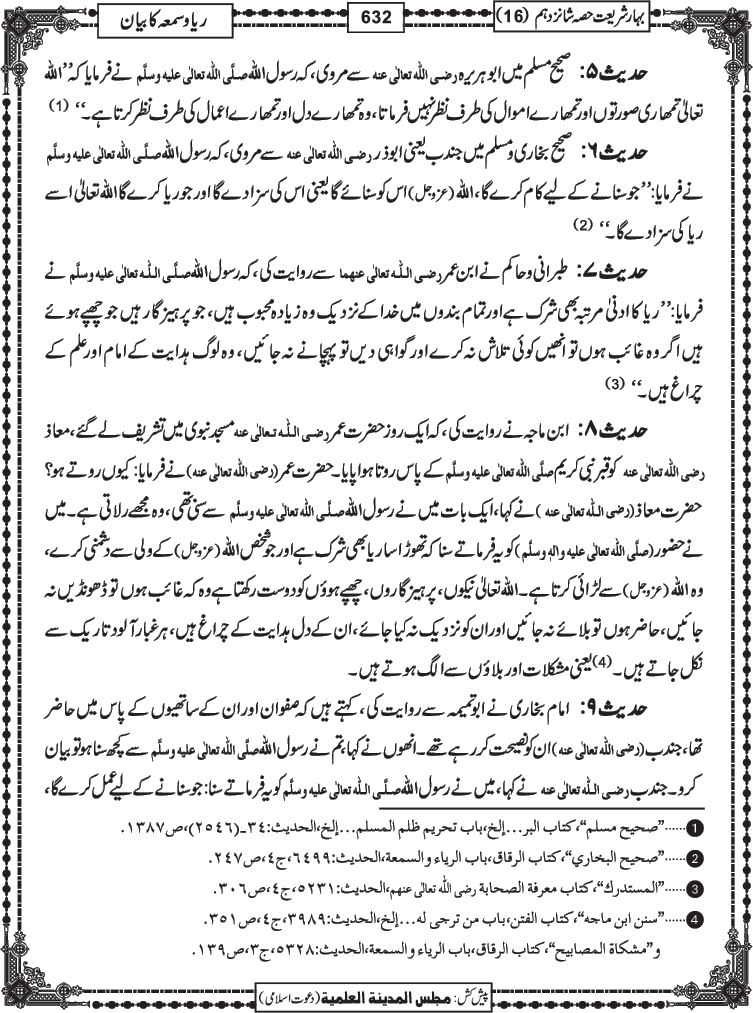 بہارِ شریعت حصہ شانزدہم (16)
632
ریا و سمعہ کا بیان
حدیث ۵: صحیح مسلم میں ابوہریرہ رضی اللہ تعالٰی عنہ سے مروی، کہ رسول اللہ صلَّی اللہ تعالٰی علیہ وسلَّم نے فرمایا کہ ”اللہ
تعالیٰ تمھاری صورتوں اور تمھارے اموال کی طرف نظر نہیں فرماتا، وہ تمھارے دل اور تمھارے اعمال کی طرف نظر کرتا ہے۔“ (1)
حدیث ۶: صحیح بخاری و مسلم میں جندب یعنی ابوذر رضی اللہ تعالٰی عنہ سے مروی، کہ رسول اللہ صلَّی اللہ تعالٰی علیہ وسلَّم
نے فرمایا: ”جو سنانے کے لیے کام کرے گا، اللہ (عزوجل) اس کو سنائے گا یعنی اس کی سزا دے گا اور جو ریا کرے گا اللہ تعالیٰ اسے
ریا کی سزا دے گا۔“ (2)
حدیث ۷: طبرانی و حاکم نے ابن عمر رضی اللہ تعالٰی عنہما سے روایت کی، کہ رسول اللہ صلَّی اللہ تعالٰی علیہ وسلَّم نے
فرمایا: ”ریا کا ادنیٰ مرتبہ بھی شرک ہے اور تمام بندوں میں خدا کے نزدیک وہ زیادہ محبوب ہیں، جو پرہیزگار ہیں جو چھپے ہوئے
ہیں اگر وہ غائب ہوں تو انھیں کوئی تلاش نہ کرے اور گواہی دیں تو پہچانے نہ جائیں، وہ لوگ ہدایت کے امام اور علم کے
چراغ ہیں۔“ (3)
حدیث ۸: ابن ماجہ نے روایت کی، کہ ایک روز حضرت عمر رضی اللہ تعالٰی عنہ مسجد نبوی میں تشریف لے گئے، معاذ
رضی اللہ تعالٰی عنہ کو قبر نبی کریم صلَّی اللہ تعالٰی علیہ وسلَّم کے پاس روتا ہوا پایا۔ حضرت عمر (رضی اللہ تعالٰی عنہ) نے فرمایا: کیوں روتے ہو؟
حضرت معاذ (رضی اللہ تعالٰی عنہ) نے کہا، ایک بات میں نے رسول اللہ صلَّی اللہ تعالٰی علیہ وسلَّم سے سنی تھی، وہ مجھے رلاتی ہے۔ میں
نے حضور (صلَّی اللہ تعالٰی علیہ والہٖ وسلَّم) کو یہ فرماتے سنا کہ تھوڑا سا ریا بھی شرک ہے اور جو شخص اللہ (عزوجل) کے ولی سے دشمنی کرے،
وہ اللہ (عزوجل) سے لڑائی کرتا ہے۔ اللہ تعالیٰ نیکوں، پرہیزگاروں، چھپے ہوؤں کو دوست رکھتا ہے وہ کہ غائب ہوں تو ڈھونڈیں نہ
جائیں، حاضر ہوں تو بلائے نہ جائیں اور ان کو نزدیک نہ کیا جائے، ان کے دل ہدایت کے چراغ ہیں، ہر غبار آلود تاریک سے
نکل جاتے ہیں۔ (4) یعنی مشکلات اور بلاؤں سے الگ ہوتے ہیں۔
حدیث ۹: امام بخاری نے ابوتمیمہ سے روایت کی، کہتے ہیں کہ صفوان اور ان کے ساتھیوں کے پاس میں حاضر
تھا، جندب (رضی اللہ تعالٰی عنہ) ان کو نصیحت کر رہے تھے۔ انھوں نے کہا، تم نے رسول اللہ صلَّی اللہ تعالٰی علیہ وسلَّم سے کچھ سنا ہو تو بیان
کرو۔ جندب رضی اللہ تعالٰی عنہ نے کہا، میں نے رسول اللہ صلَّی اللہ تعالٰی علیہ وسلَّم کو یہ فرماتے سنا: جو سنانے کے لیے عمل کرے گا،
1 ......”صحیح مسلم“، کتاب البر...إلخ، باب تحریم ظلم المسلم...إلخ، الحدیث: ٣٤۔(٢٥٤٦)، ص١٣٨٧.
2 ......”صحیح البخاري“، کتاب الرقاق، باب الریاء و السمعة، الحدیث: ٦٤٩٩، ج٤، ص٢٤٧.
3 ......”المستدرك“، کتاب معرفة الصحابة رضی اللہ تعالٰی عنہم، الحدیث: ٥٢٣١، ج٤، ص٣٠٦.
4 ......”سنن ابن ماجه“، کتاب الفتن، باب من ترجی له...إلخ، الحدیث: ٣٩٨٩، ج٤، ص٣٥١.
و”مشکاة المصابیح“، کتاب الرقاق، باب الریاء و السمعة، الحدیث: ٥٣٢٨، ج٣، ص١٣٩.
پیش کش: مجلس المدینة العلمیة (دعوتِ اسلامی)